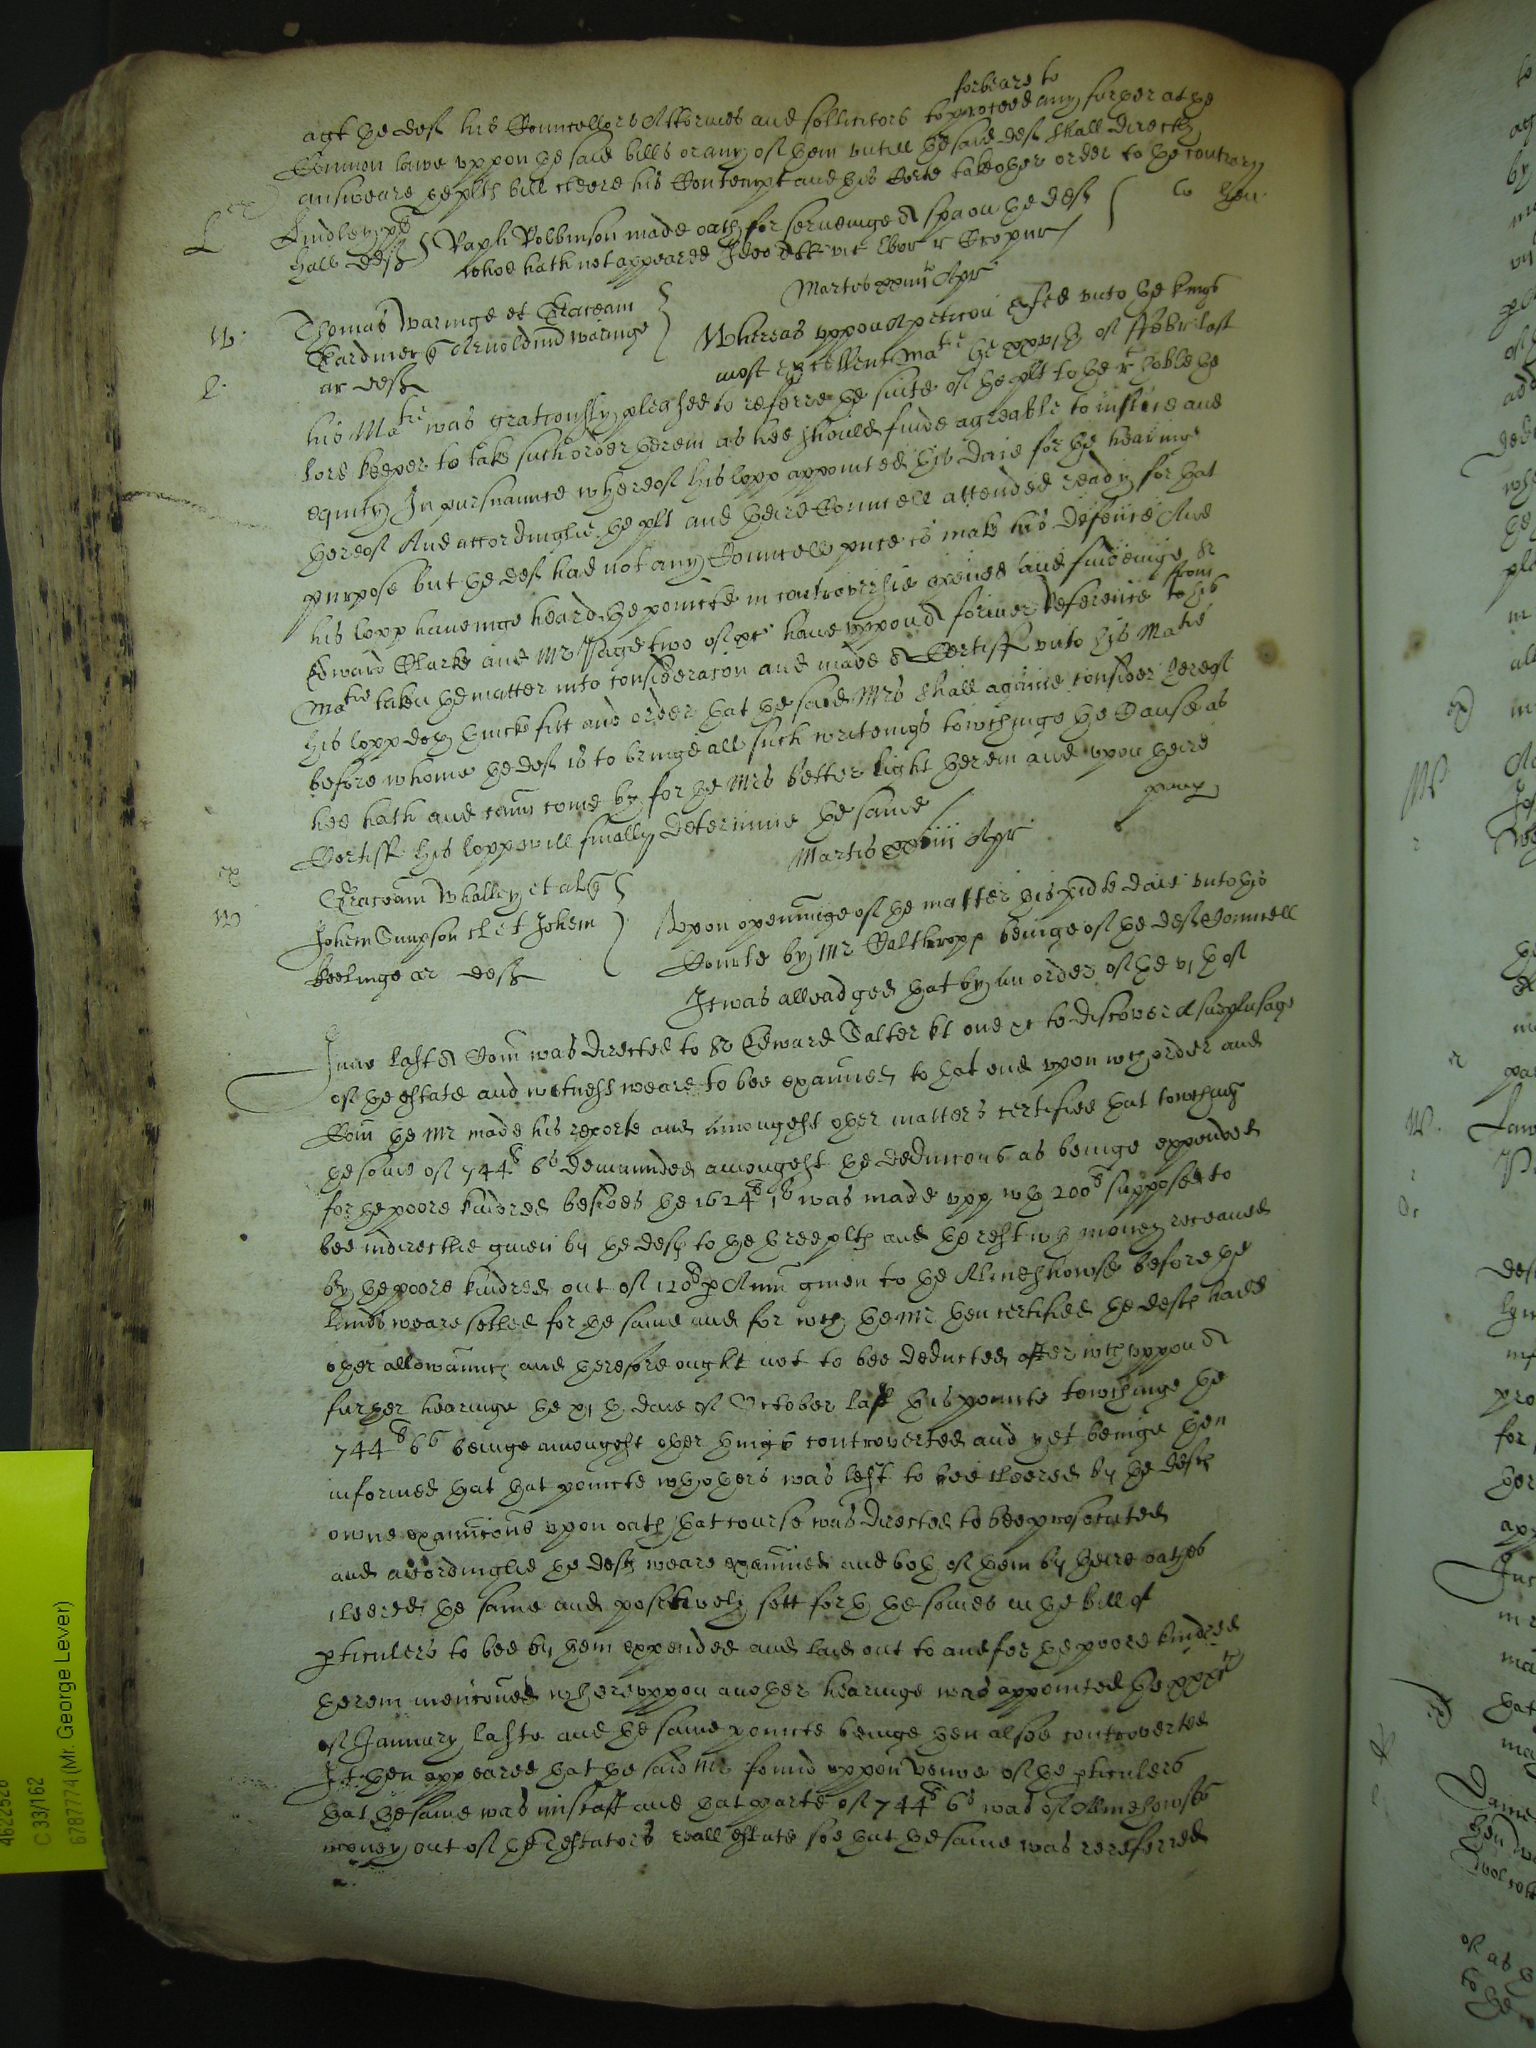 forbeare to
agt the deft his Councellors Attornies and sollicitors to proceed any further at the
Common lawe uppon the said bills or any of them untill the said deft shall directly
answeare the plts bill cleere his Contempt and this Corte take other order to the contrary
Lindley plt
Hall deft } Raph Robbinson made oath for serveinge a spaon the deft
whoe hath not appeared Ideo att vic Ebor
Martis xxiiii Apr
W:
Thomas Waringe et
Gardiner Arnoldum Waringe
ar deft
Whereas uppon a peticon exhited unto the kings
most excellent Matie the xxvth of ffebr last
his Matie was gratiously pleased to referre the suite of the plt to the r hoble the
lord keeper to take such order therein as hee should finde agreable to iustice and
equity In pursuaunce whereof his lopp appointed this daie for the hearinge
thereof And accordinglie the plt and theire Councell attended ready for that
purpose but the deft had not any Councell pnte to make his defence And
his lopp haveinge heard the pointe in controversie opened and findeinge Sr
Edward Clarke and Mr Page two of the Mrs have uppon a former Reference from his
Matie taken the matter into consideracon and made a Certiff unto his Matie
his lopp doth thincke fitt and order that the said Mrs shall againe consider thereof
before whome the deft is to bringe all such writeings towchinge the Cause as
hee hath and cann come by for the Mrs better light therein and upon theire
Certiff his lopp will finally determine the same /
Martis xxiiii Apr
Whalley et al
Johem Simpson cl et Johem
Keelinge ar deft
Upon openninge of the matter this pnte daie unto this
Courte by Mr Calthropp beinge of the defts Councell
It was alleadged that by an order of the vith of
June last a Com was directed to Sr Edward Salter kt one &c to discover a surplusage
of the estate and witnesses weare to bee examined to that end upon wch order and
Com the Mr made his reporte and amongest other matters certified that towching
the some of 744l 6s demaunded amongest the deducons as beinge expended
for the poore kindred besides the 1624l 1s was made upp wth 200l supposed to
bee indirectlie given by the defts to the three plts and the rest wth money receaved
by the poore kindred out of 120l p Annu given to the Almeshowse before the
lands weare setled for the same and for wch the Mr then certified the defts hadd
other allowaunce and therefore ought not to bee deducted after wch uppon a
further hearinge the xith daie of October last this pointe towchinge the
744l 6s beinge amongest other things controverted and yet beinge then
informed that that pointe wth others was left to bee cleered by the defts
owne examinacons upon oath that course was directed to bee prosecuted
and accordinglie the defts weare examined and both of them by theire oathes
cleered the same and positively sett forth the somes in the bill of
pticulers to bee by them expended and laid out to and for the poore kindred
therein mencioned whereuppon another hearinge was appointed the xxxth
of January laste and the same pointe beinge then alsoe controverted
It then appeared that the said Mr found uppon veiwe of the pticulers
that the same was mistakt and that parte of 744l 6s was of Almehowse
money out of the Testators reall estate soe that the same was rereferred
C 33/162
6787774 (Mr. George Lever)